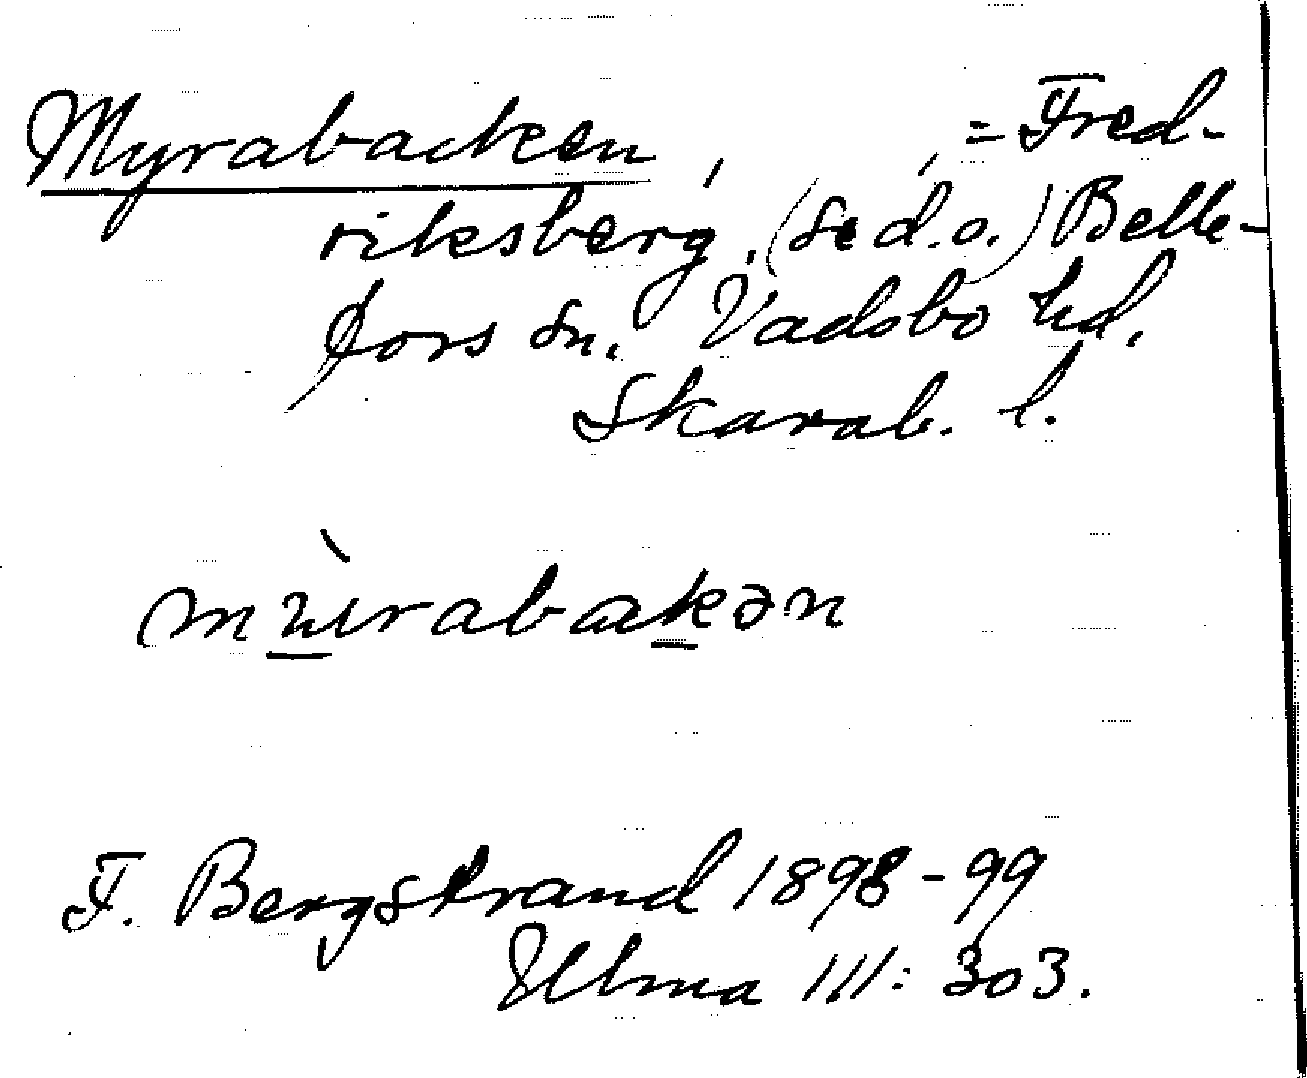 Myrabacken, , = Fred-
riksberg, (se d.o.) Bäcke-
fors sn. Vadsbo hd.
Skarab. l.
mùrabakən
F. Bergstrand 1898-99
Ulma 111: 303.